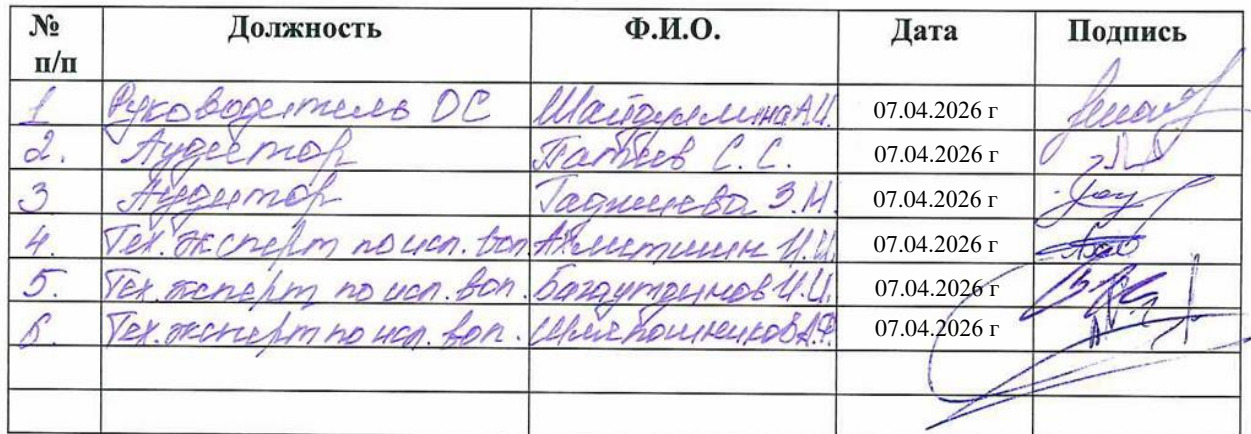 № п/п Должность Ф.И.О. Дата Подпись
1 Руководитель ОС Шайдуллина А.И. 07.04.2026 г
2. Аудитор Патеев С. С. 07.04.2026 г
3 Аудитор Гаджиева З.М. 07.04.2026 г
4. Тех. эксперт по исп. воп. Ахметшин И.И. 07.04.2026 г
5. Тех. эксперт по исп. воп. Багаутдинов И.И. 07.04.2026 г
6. Тех. эксперт по исп. воп. Шляпошников А.Ф. 07.04.2026 г